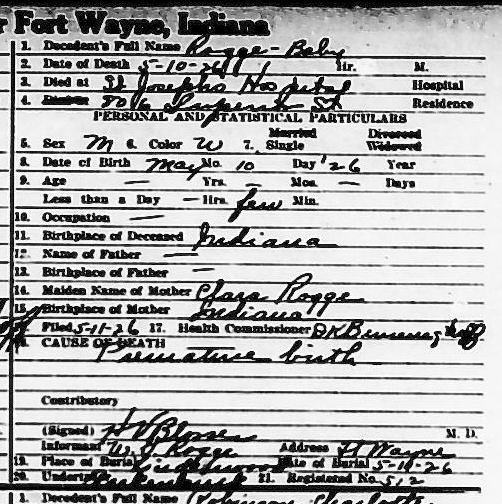 r Fort Wayne, Indiana
1. Decedent's Full Name Rogge - Baby
2. Date of Death 5-10-26 Hr. M.
3. Died at St Josephs Hospital Hospital
4. 8016 Superior St Residence
PERSONAL AND STATISTICAL PARTICULARS
5. Sex M 6. Color W 7. Married Single Divorced Widowed
8. Date of Birth May No. 10 Day '26 Year
9. Age — Yrs. — Mos. — Days
Less than a Day — Hrs. few Min.
10. Occupation —
11. Birthplace of Deceased Indiana
12. Name of Father —
13. Birthplace of Father —
14. Maiden Name of Mother Clara Rogge
15. Birthplace of Mother Indiana
Filed 5-11-26 17. Health Commissioner
18. CAUSE OF DEATH
Premature birth
Contributory
(Signed) M. D.
Informant W. J. Rogge Address Ft Wayne
19. Place of Burial Lindenwood Date of Burial 5-10-26
20. Undertaker 21. Registered No. 512
1. Decedent's Full Name Robinson Charlotte